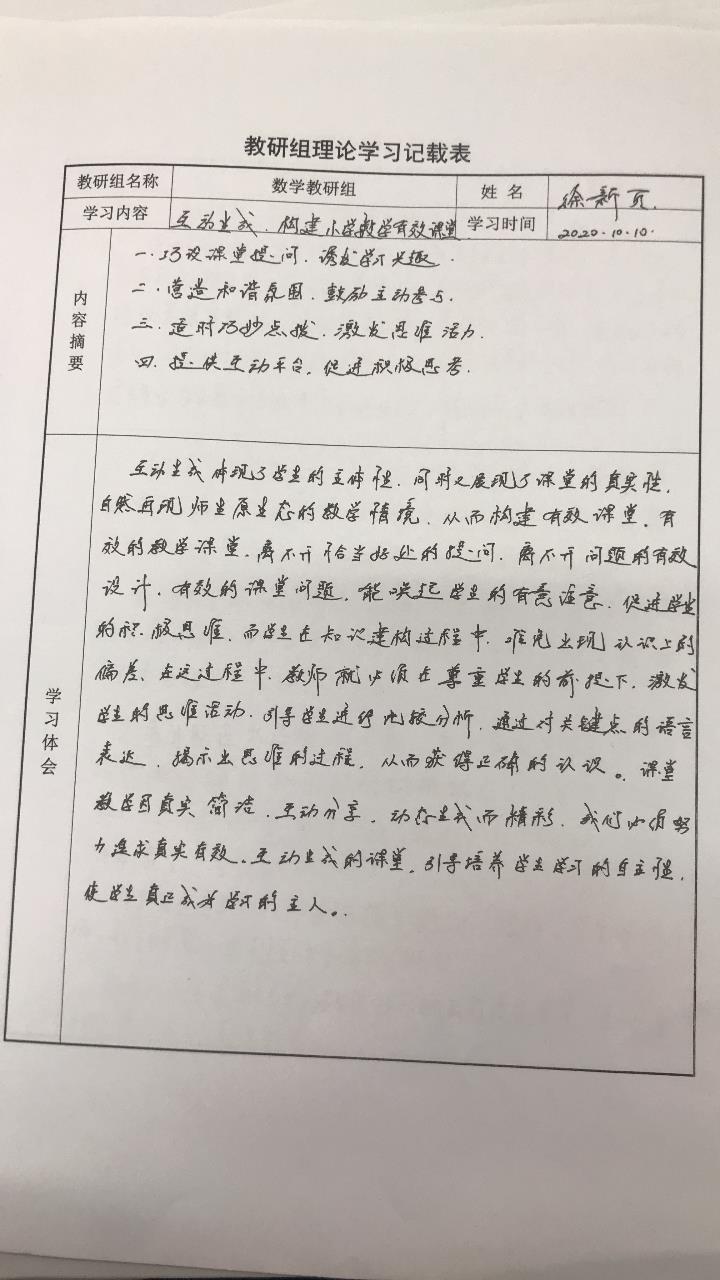 教研组理论学习记载表
教研组名称 数学教研组 姓 名 徐新页.
学习内容 互动生成、构建小学数学有效课堂 学习时间 2020.10.10.
内容摘要
一.巧设课堂提问,诱发学习兴趣.
二.营造和谐氛围.鼓励主动参与.
三.适时巧妙点拨.激发思维活力.
四.提供互动平台.促进积极思考.
学习体会
互动生成体现了学生的主体性.同时又展现了课堂的真实性.
自然再现师生原生态的教学情境.从而构建有效课堂.有
效的教学课堂.离不开恰当好处的提问.离不开问题的有效
设计.有效的课堂问题.能唤起学生的有意注意.促进学生
的积极思维.而学生在知识建构过程中.难免出现认识上的
偏差.在这过程中.教师就必须在尊重学生的前提下.激发
学生的思维活动.引导学生进行比较分析.通过对关键点的语言
表达.揭示出思维的过程.从而获得正确的认识。课堂
教学因真实简洁.互动分享.动态生成而精彩.我们必须努
力追求真实有效.互动生成的课堂.引导培养学生学习的自主性.
使学生真正成为学习的主人。